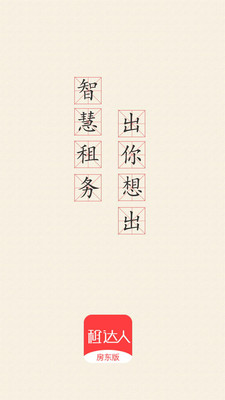 智慧租务
出你想出
租达人
房东版